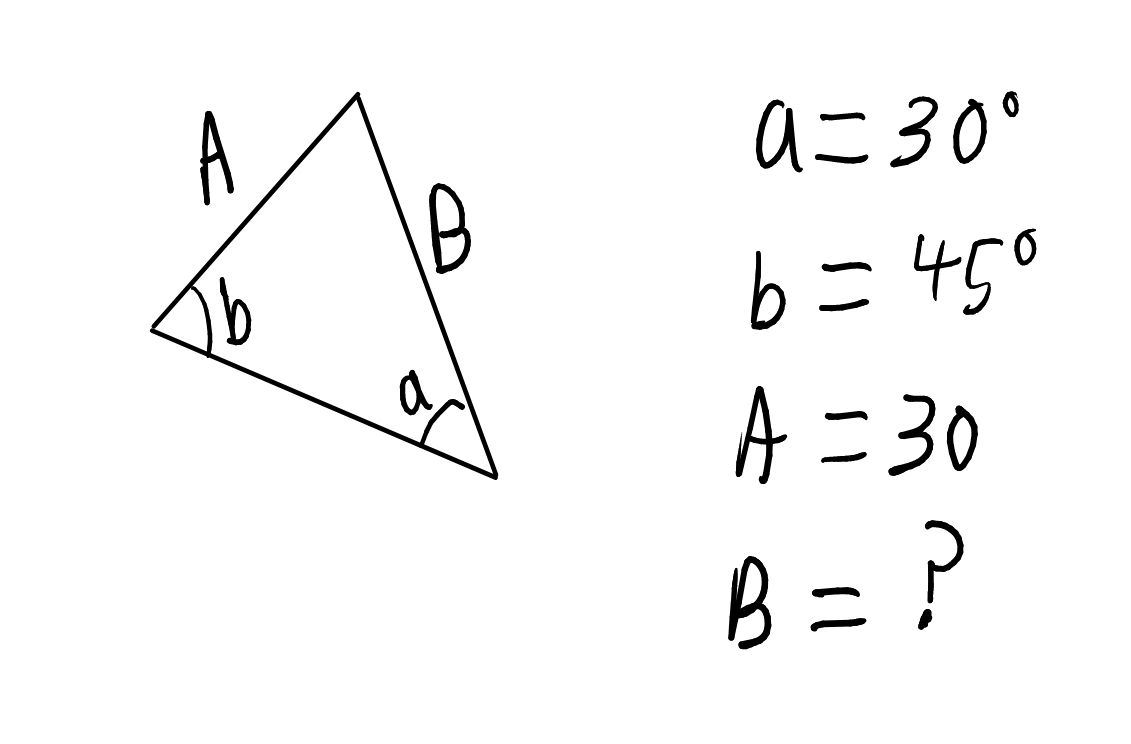 A
B
b
a
a = 30°
b = 45°
A = 30
B = ?